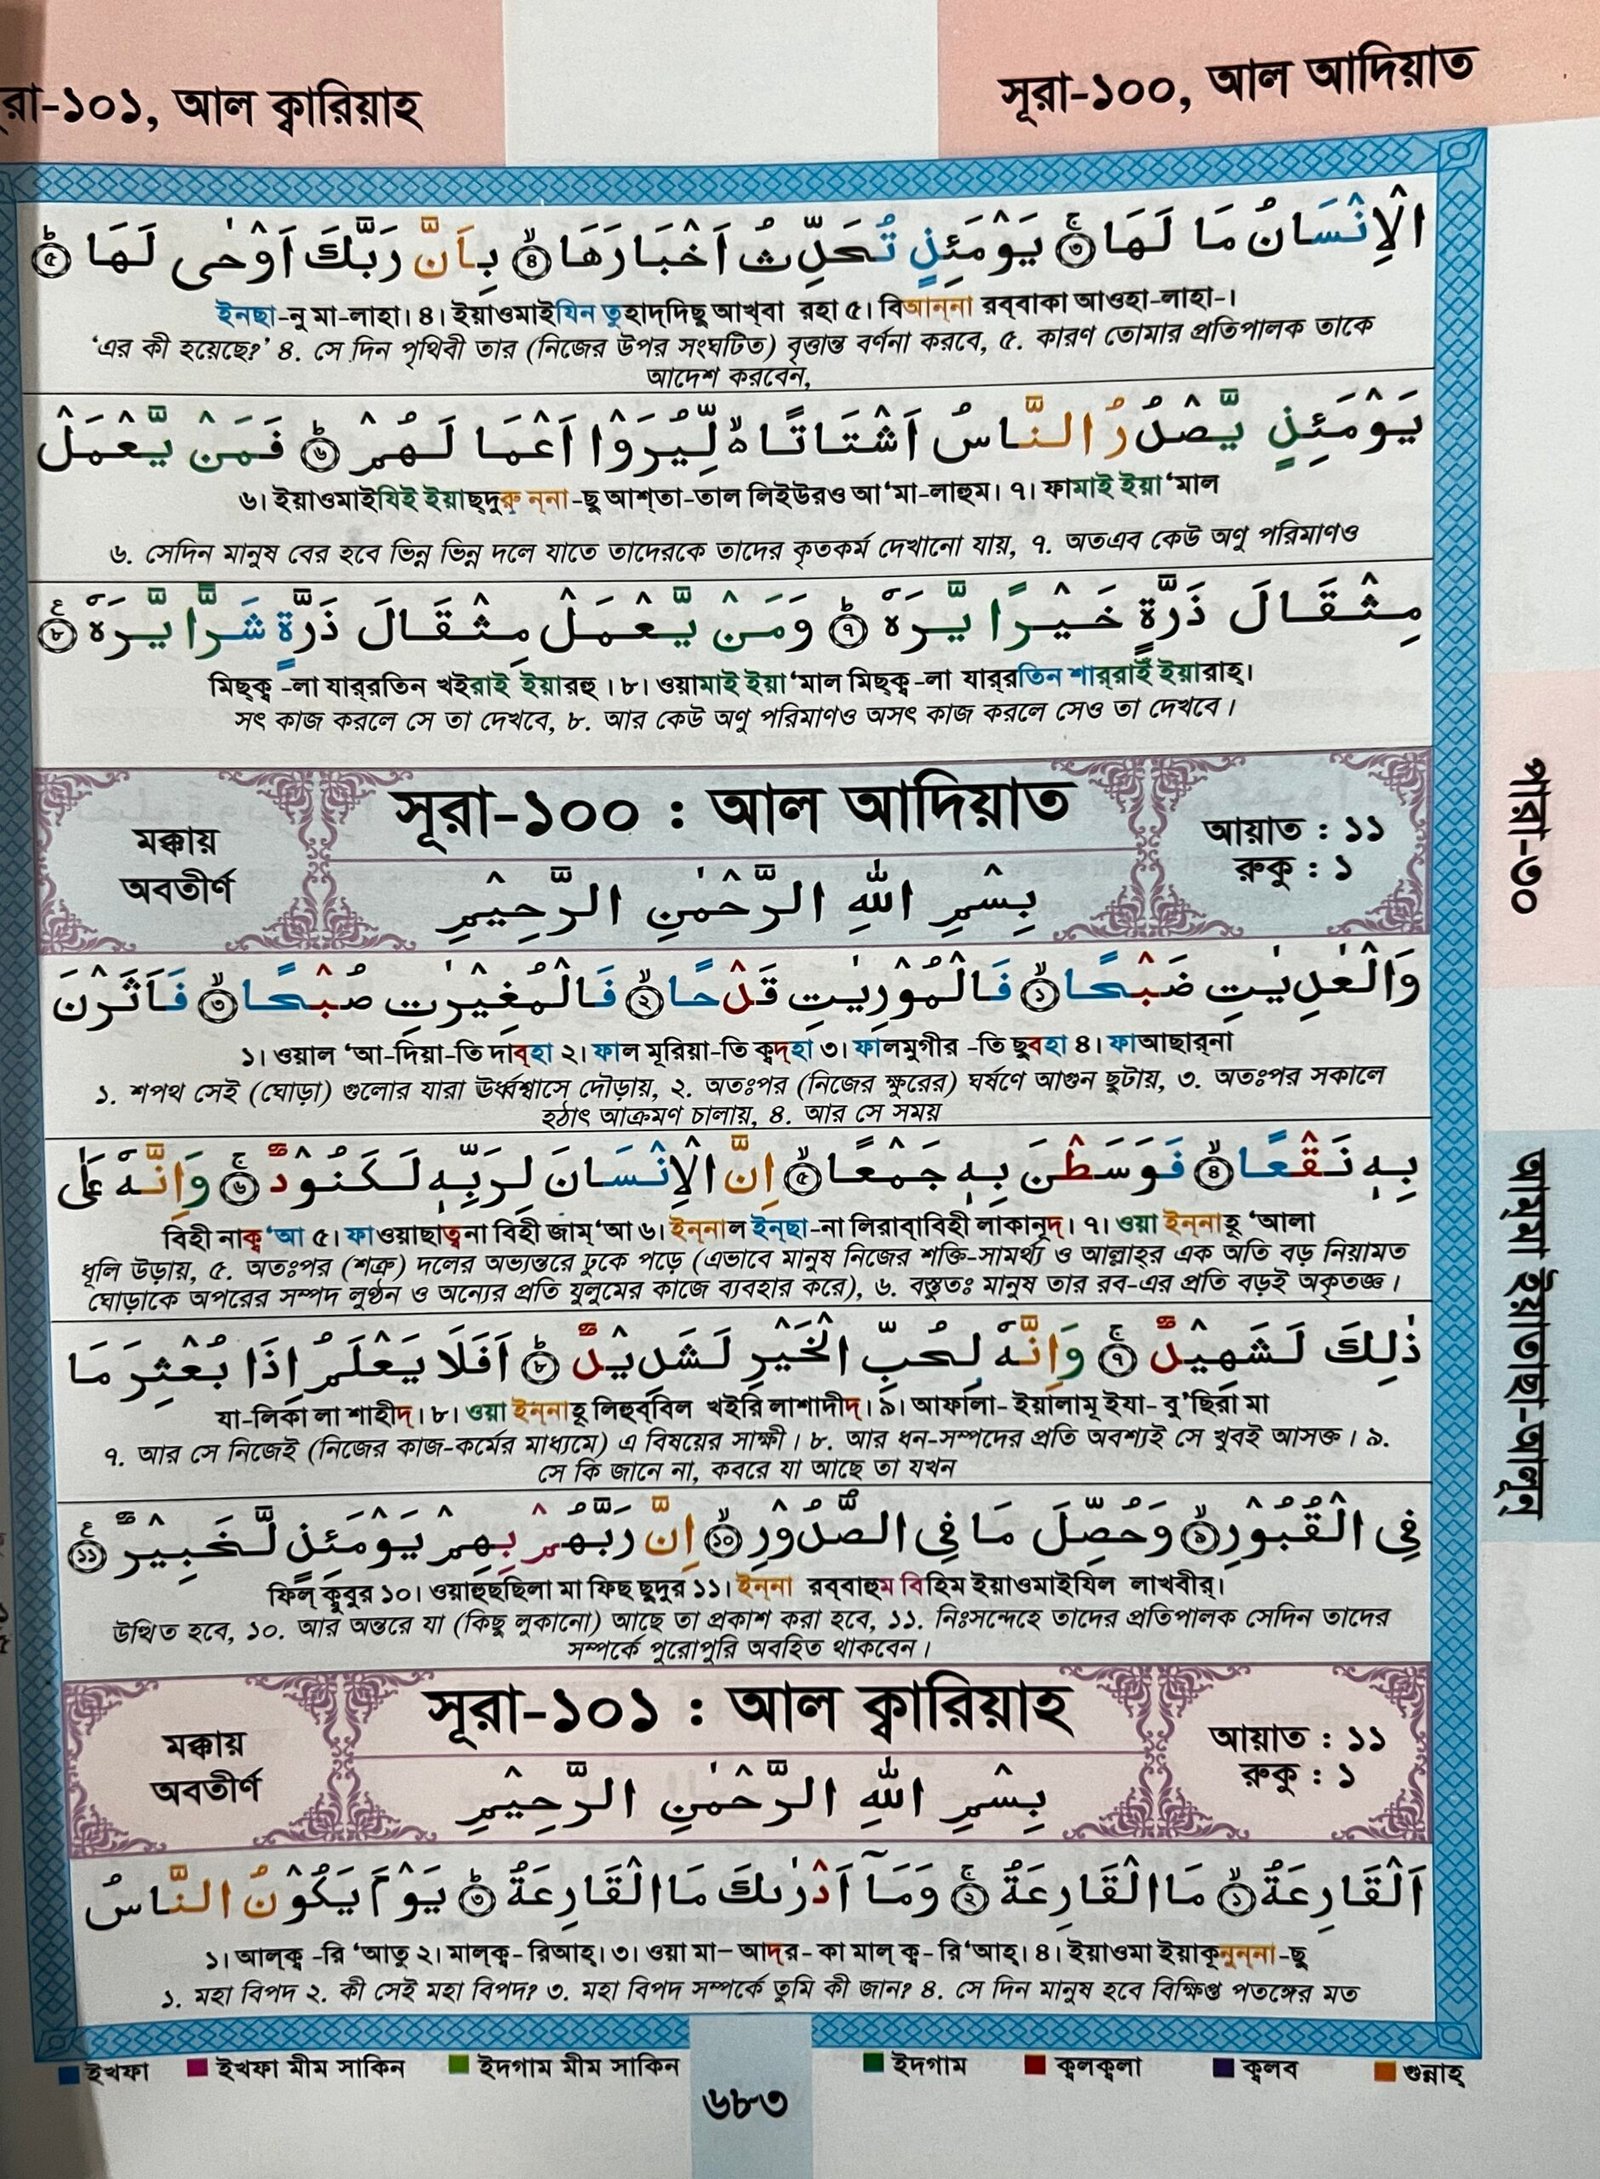 সূরা-১০১, আল ক্বারিয়াহ
সূরা-১০০, আল আদিয়াত
الْاِنْسَانُ مَا لَهَا ۚ ③ يَوْمَئِذٍ تُحَدِّثُ اَخْبَارَهَا ۙ ④ بِاَنَّ رَبَّكَ اَوْحٰى لَهَا ؕ ⑤
ইনছা-নু মা-লাহা। ৪। ইয়াওমাইযিন তুহাদ্দিছু আখ্বা রহা ৫। বিআন্না রব্বাকা আওহা-লাহা-।
‘এর কী হয়েছে?’ ৪. সে দিন পৃথিবী তার (নিজের উপর সংঘটিত) বৃত্তান্ত বর্ণনা করবে, ৫. কারণ তোমার প্রতিপালক তাকে
আদেশ করবেন,
يَوْمَئِذٍ يَّصْدُرُ النَّاسُ اَشْتَاتًا ۙ۬ لِّيُرَوْا اَعْمَا لَهُمْ ؕ ⑥ فَمَنْ يَّعْمَلْ
৬। ইয়াওমাইযিই ইয়াছ্দুরু ন্না-ছু আশ্তা-তাল লিইউরও আ‘মা-লাহুম। ৭। ফামাই ইয়া‘মাল
৬. সেদিন মানুষ বের হবে ভিন্ন ভিন্ন দলে যাতে তাদেরকে তাদের কৃতকর্ম দেখানো যায়, ৭. অতএব কেউ অণু পরিমাণও
مِثْقَالَ ذَرَّةٍ خَيْرًا يَّرَهٗ ؕ ⑦ وَمَنْ يَّعْمَلْ مِثْقَالَ ذَرَّةٍ شَرًّا يَّرَهٗ ۧ ⑧
মিছ্ক্ব -লা যার্রতিন খইরাই ইয়ারহু । ৮। ওয়ামাই ইয়া‘মাল মিছ্ক্ব -লা যার্রতিন শার্রাই ইয়ারাহ্।
সৎ কাজ করলে সে তা দেখবে, ৮. আর কেউ অণু পরিমাণও অসৎ কাজ করলে সেও তা দেখবে।
সূরা-১০০ : আল আদিয়াত
মক্কায়
অবতীর্ণ
আয়াত : ১১
রুকু : ১
بِسْمِ اللّٰهِ الرَّحْمٰنِ الرَّحِيْمِ
وَالْعٰدِيٰتِ ضَبْحًا ۙ ① فَالْمُوْرِيٰتِ قَدْحًا ۙ ② فَالْمُغِيْرٰتِ صُبْحًا ۙ ③ فَاَثَرْنَ
১। ওয়াল ‘আ-দিয়া-তি দাব্হা ২। ফাল মূরিয়া-তি ক্বদ্হা ৩। ফালমুগীর -তি ছুবহা ৪। ফাআছার্না
১. শপথ সেই (ঘোড়া) গুলোর যারা ঊর্ধ্বশ্বাসে দৌড়ায়, ২. অতঃপর (নিজের ক্ষুরের) ঘর্ষণে আগুন ছুটায়, ৩. অতঃপর সকালে
হঠাৎ আক্রমণ চালায়, ৪. আর সে সময়
بِهٖ نَقْعًا ۙ ④ فَوَسَطْنَ بِهٖ جَمْعًا ۙ ⑤ اِنَّ الْاِنْسَانَ لِرَبِّهٖ لَكَنُوْدٌ ۚ ⑥ وَاِنَّهٗ عَلٰى
বিহী নাক্ব‘আ ৫। ফাওয়াছাত্বনা বিহী জাম্‘আ ৬। ইন্নাল ইন্ছা-না লিরাব্বিহী লাকানূদ্। ৭। ওয়া ইন্নাহূ ‘আলা
ধূলি উড়ায়, ৫. অতঃপর (শত্রু) দলের অভ্যন্তরে ঢুকে পড়ে (এভাবে মানুষ নিজের শক্তি-সামর্থ্য ও আল্লাহ্‌র এক অতি বড় নিয়ামত
ঘোড়াকে অপরের সম্পদ লুণ্ঠন ও অন্যের প্রতি যুলুমের কাজে ব্যবহার করে), ৬. বস্তুতঃ মানুষ তার রব-এর প্রতি বড়ই অকৃতজ্ঞ।
ذٰلِكَ لَشَهِيْدٌ ۚ ⑦ وَاِنَّهٗ لِحُبِّ الْخَيْرِ لَشَدِيْدٌ ؕ ⑧ اَفَلَا يَعْلَمُ اِذَا بُعْثِرَ مَا
যা-লিকা লা শাহীদ্। ৮। ওয়া ইন্নাহূ লিহুব্বিল খইরি লাশাদীদ্। ৯। আফালা- ইয়ালামূ ইযা- বু’ছিরা মা
৭. আর সে নিজেই (নিজের কাজ-কর্মের মাধ্যমে) এ বিষয়ের সাক্ষী। ৮. আর ধন-সম্পদের প্রতি অবশ্যই সে খুবই আসক্ত। ৯.
সে কি জানে না, কবরে যা আছে তা যখন
فِى الْقُبُوْرِ ۙ ⑨ وَحُصِّلَ مَا فِى الصُّدُوْرِ ۙ ⑩ اِنَّ رَبَّهُمْ بِهِمْ يَوْمَئِذٍ لَّخَبِيْرٌ ۧ ⑪
ফিল্ ক্বুবুর ১০। ওয়াহুছছিলা মা ফিছ ছুদুর ১১। ইন্না রব্বাহুম বিহিম ইয়াওমাইযিল লাখবীর্।
উত্থিত হবে, ১০. আর অন্তরে যা (কিছু লুকানো) আছে তা প্রকাশ করা হবে, ১১. নিঃসন্দেহে তাদের প্রতিপালক সেদিন তাদের
সম্পর্কে পুরোপুরি অবহিত থাকবেন।
সূরা-১০১ : আল ক্বারিয়াহ
মক্কায়
অবতীর্ণ
আয়াত : ১১
রুকু : ১
بِسْمِ اللّٰهِ الرَّحْمٰنِ الرَّحِيْمِ
اَلْقَارِعَةُ ۙ ① مَا الْقَارِعَةُ ۚ ② وَمَآ اَدْرٰىكَ مَا الْقَارِعَةُ ؕ ③ يَوْمَ يَكُوْنُ النَّاسُ
১। আল্ক্ব -রি ‘আতু ২। মাল্ক্ব- রিআহ্। ৩। ওয়া মা– আদ্র- কা মাল্ ক্ব- রি‘আহ্। ৪। ইয়াওমা ইয়াকূনুন্না -ছু
১. মহা বিপদ ২. কী সেই মহা বিপদ? ৩. মহা বিপদ সম্পর্কে তুমি কী জান? ৪. সে দিন মানুষ হবে বিক্ষিপ্ত পতঙ্গের মত
ইখফা ইখফা মীম সাকিন ইদগাম মীম সাকিন ইদগাম ক্বলক্বলা ক্বলব গুন্নাহ্
৬৮৩
পারা-৩০
আম্মা ইয়াতাছা-আলূন্